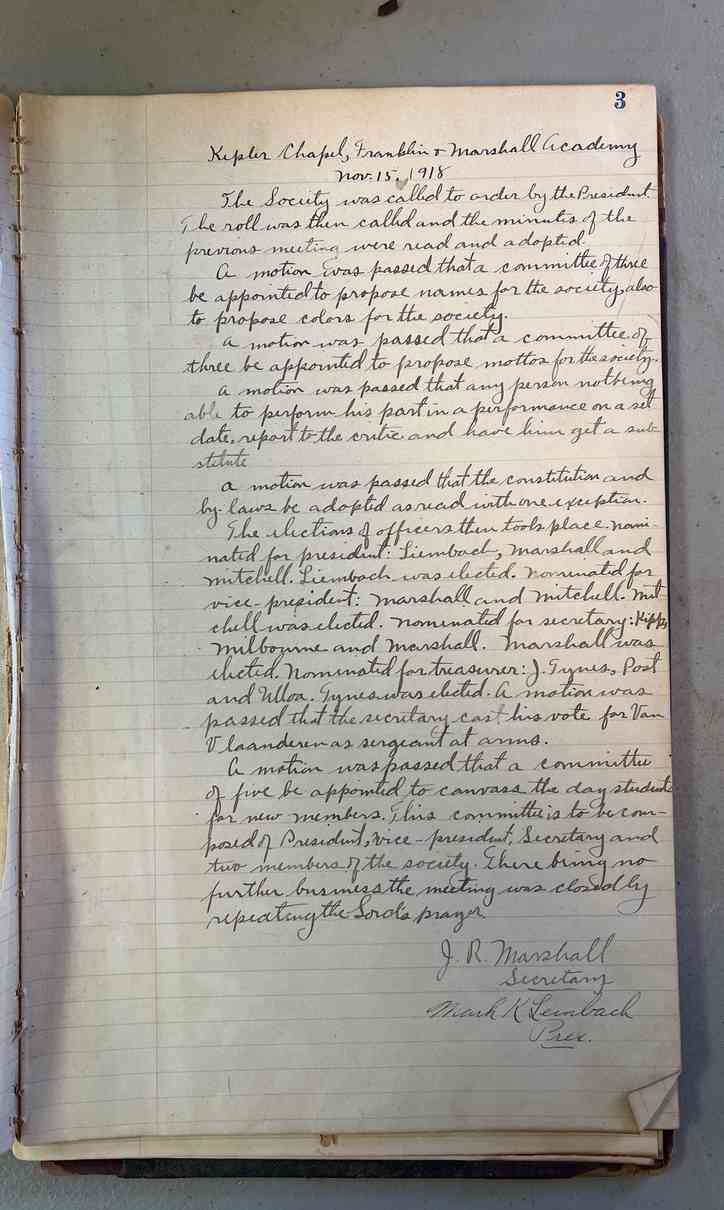 3
Kepler Chapel, Franklin & Marshall Academy
Nov. 15, 1918
The Society was called to order by the President.
The roll was then called and the minutes of the
previous meeting were read and adopted.
A motion was passed that a committee of three
be appointed to propose names for the society, also
to propose colors for the society.
A motion was passed that a committee of
three be appointed to propose mottos for the society.
A motion was passed that any person not being
able to perform his part in a performance on a set
date, report to the critic and have him get a sub-
stitute
A motion was passed that the constitution and
by-laws be adopted as read with one exception.
The elections of officers then took place. Nomi-
nated for president: Liembach, Marshall and
Mitchell. Liembach was elected. Nominated for
vice-president: Marshall and Mitchell. Mit-
chell was elected. Nominated for secretary:
Milbourne and Marshall. Marshall was
elected. Nominated for treasurer: J. Tynes, Post
and Ulloa. Tynes was elected. A motion was
passed that the secretary cast his vote for Van
Vlaanderen as sergeant at arms.
A motion was passed that a committee
of five be appointed to canvass the day students
for new members. This committee is to be com-
posed of President, vice-president, Secretary and
two members of the society. There being no
further business the meeting was closed by
repeating the Lord's prayer
J. R. Marshall
Secretary
Mark K Leinbach
Pres.